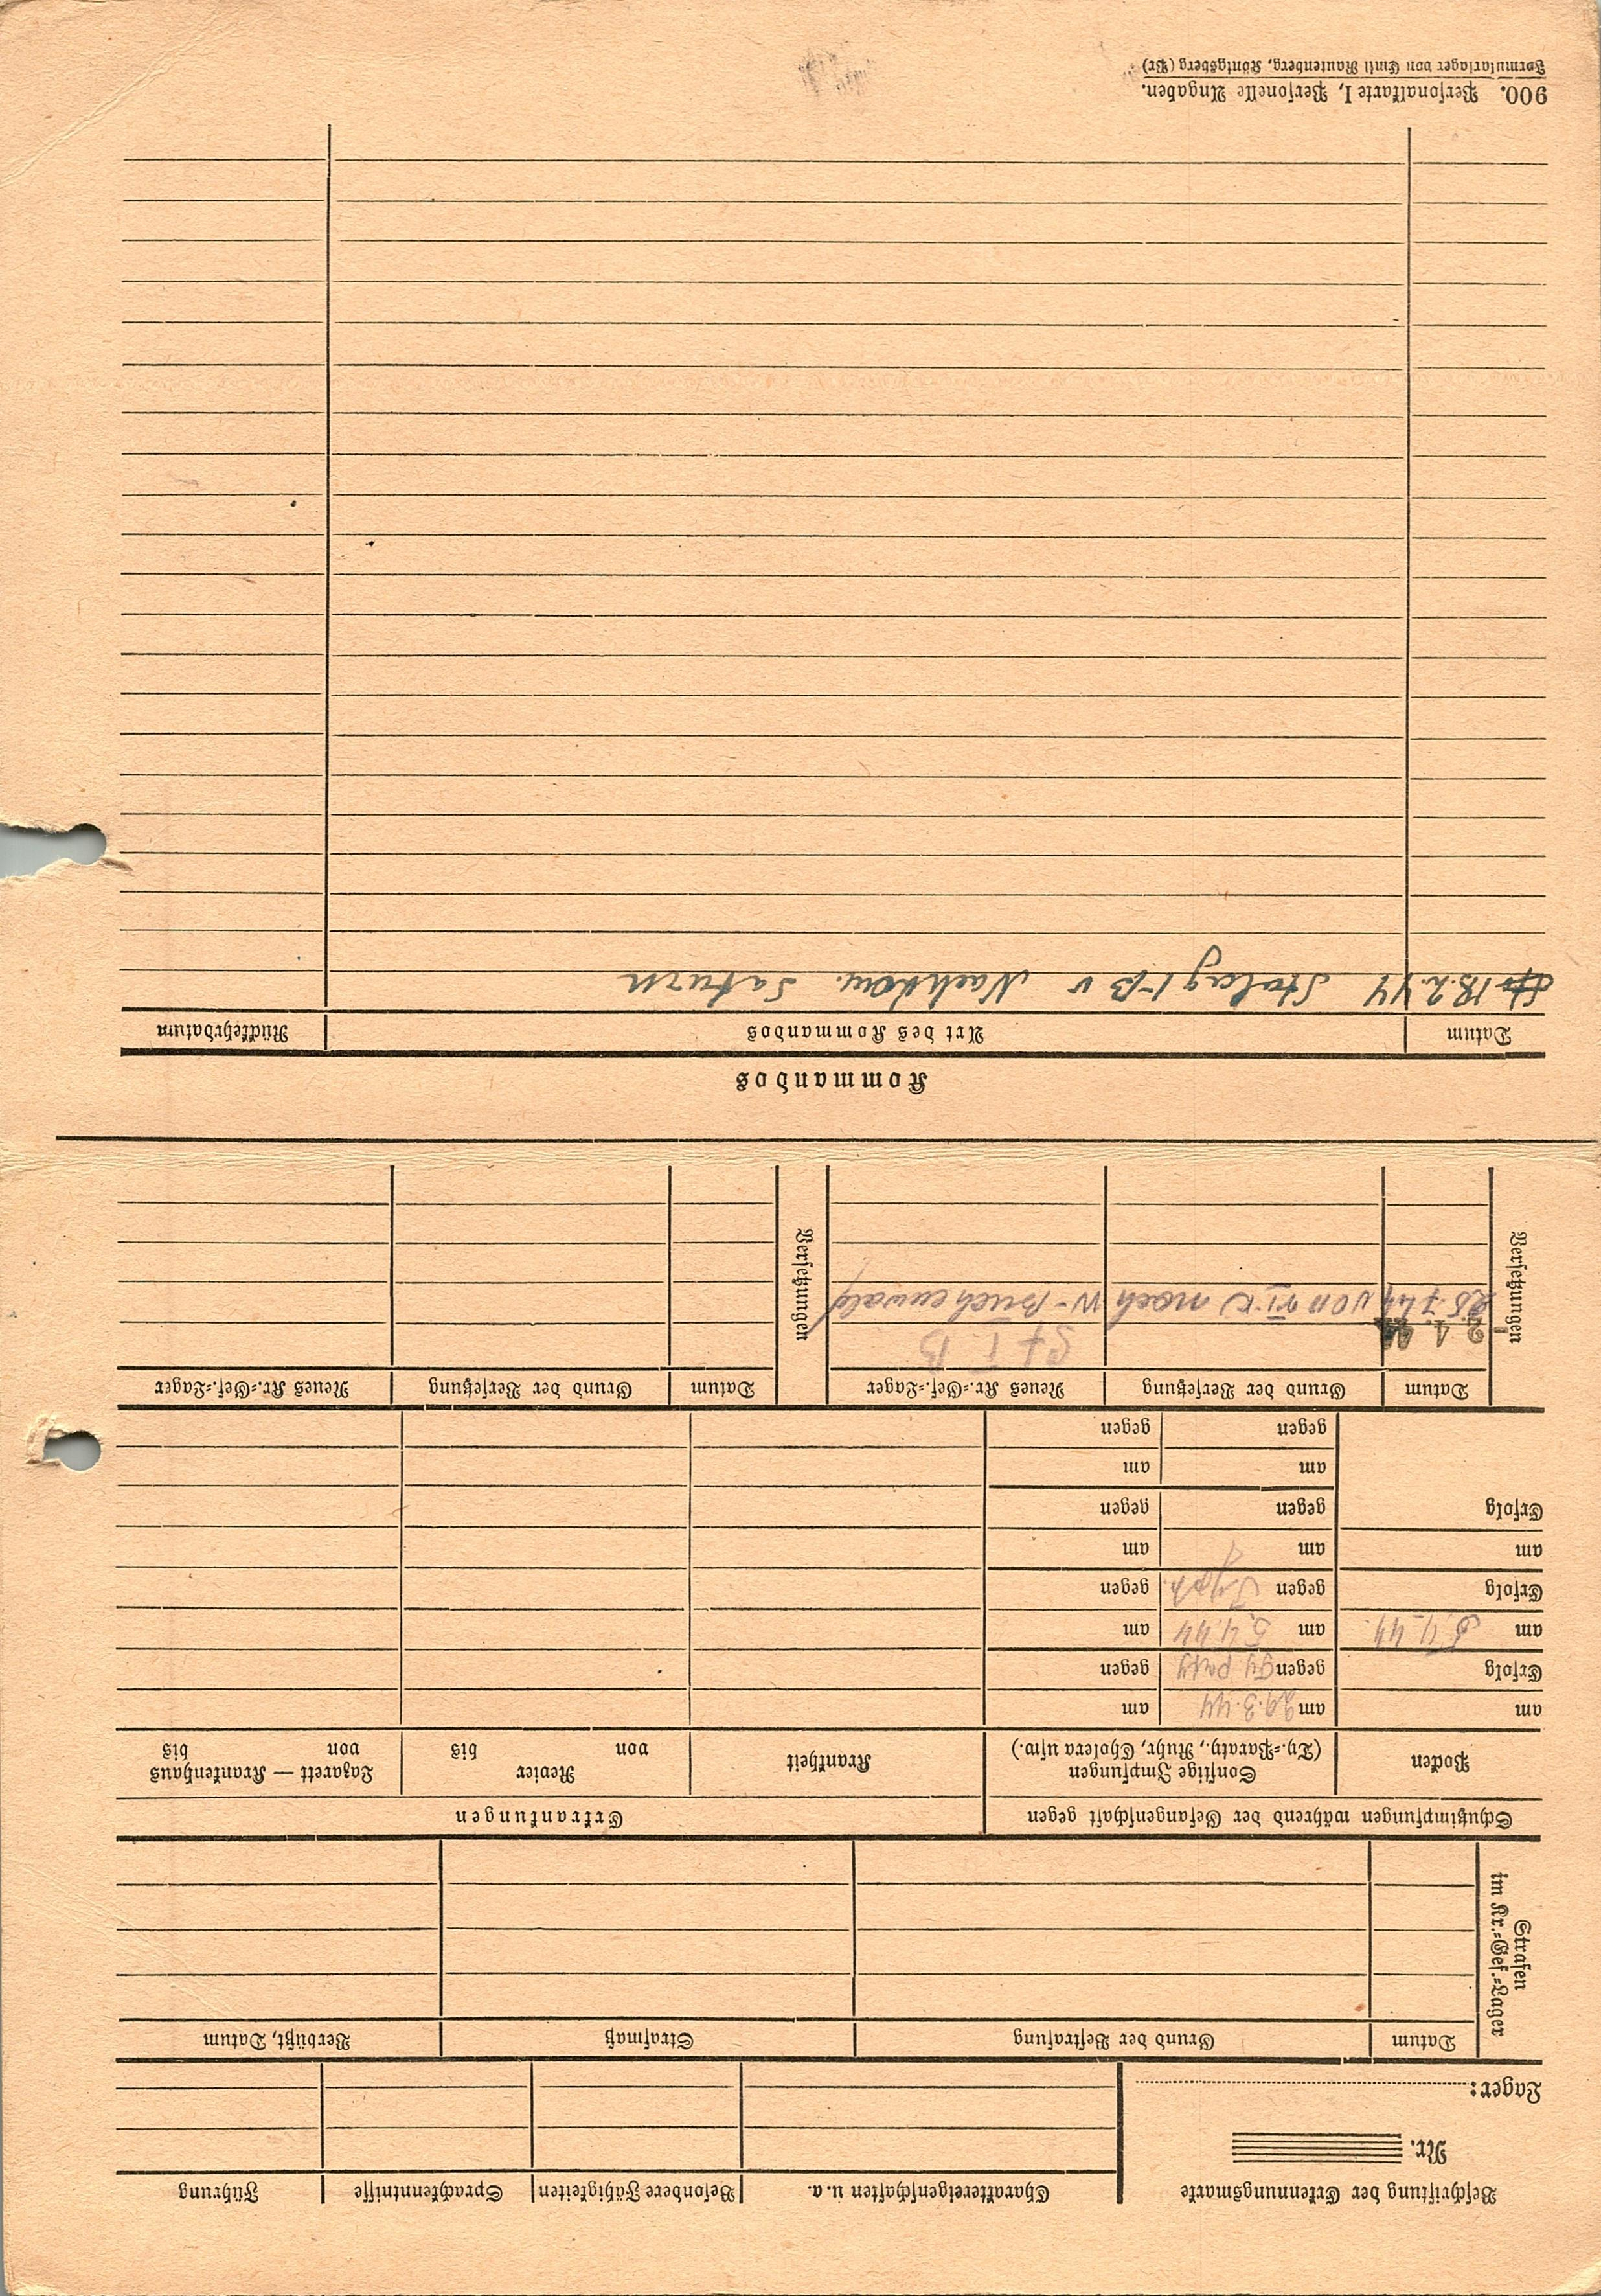 Beschriftung der Erkennungsmarke
Nr.
Lager:
Charaktereigenschaften u. a.
Besondere Fähigkeiten
Sprachkenntnisse
Führung
Strafen
im Kr.=Gef.=Lager
Datum
Grund der Bestrafung
Strafmaß
Verbüßt, Datum
Schutzimpfungen während der Gefangenschaft gegen
Erkrankungen
Pocken
Sonstige Impfungen
(Ty.=Paraty., Ruhr, Cholera usw.)
Krankheit
Revier
von bis
Lazarett — Krankenhaus
von bis
am
am 29.3.44
am
Erfolg
gegen Ty paty
gegen
am 5.4.44
am 5.4.44
am
Erfolg
gegen Typh.
gegen
am
am
am
Erfolg
gegen
gegen
am
am
gegen
gegen
Versetzungen
Datum
Grund der Versetzung
Neues Kr.=Gef.=Lager
Versetzungen
Datum
Grund der Versetzung
Neues Kr.=Gef.=Lager
St I B
25.7.44 von VI-K nach W-Buchenwald
Kommandos
Datum
Art des Kommandos
Rückkehrdatum
18.2.44 Stalag I-B v Nachkom. Saturn
900. Personalkarte I, Personelle Angaben.
Formularlager von Emil Rautenberg, Königsberg (Pr)